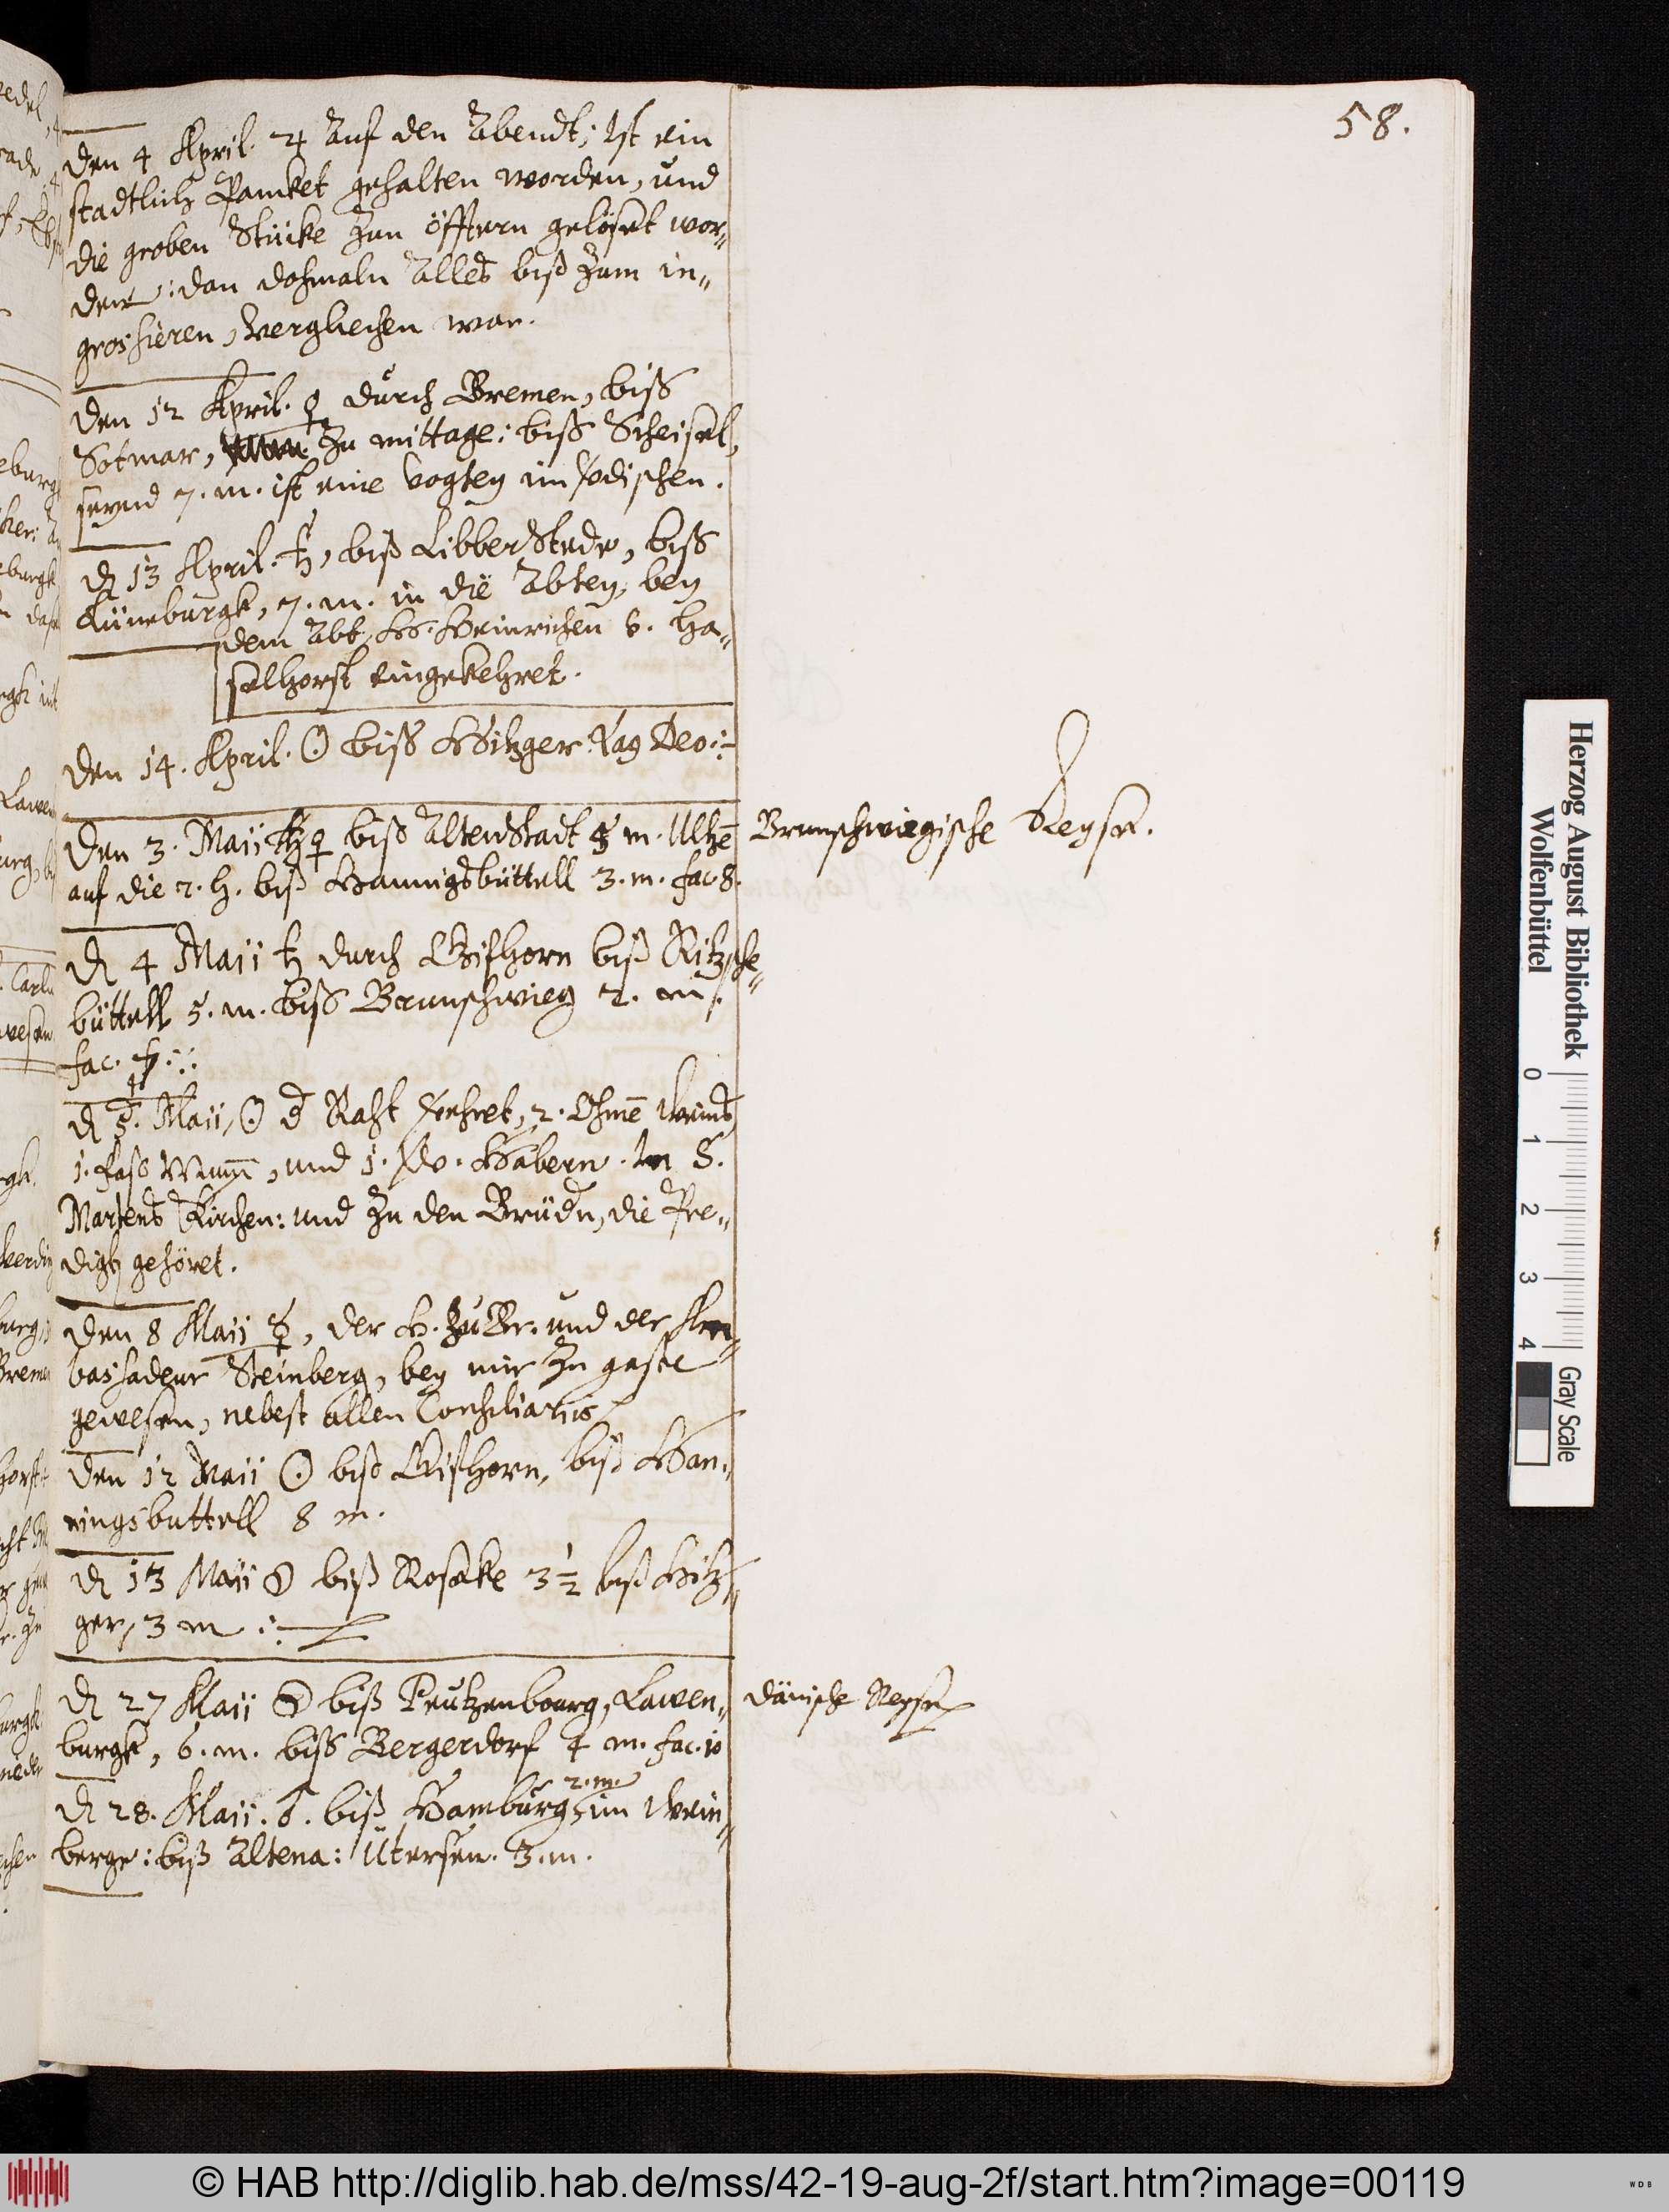 58.
Den 4 April. ♃ Auf den Abendt; Ist ein
stadtlich Pancket gehalten worden, und
die groben Stücke zun öfftern gelöset wor„
den: dan dohmaln Alles biß zum in„
grossieren, verglichen war.
Den 12 April. ♀ durch Bremen, biß
Sotmar, zu mittage: biß Scheisel,
7. m. ist eine Vogtey im
D 13 April. ♄, biß Libberstede, biß
Lüneburgk, 7. m. in die Abtey, bey
dem Abt, H. Heinrichen v. Ha„
selhorst eingekehret.
Den 14. April. ☉ biß Hitzger. Deo:
Den 3. Maii ♀ biß Altenstadt 5 m. Ultzē
auf die 2. h. biß Hannigsbüttell 3. m. fac. 8.
Brunschwiegische Reyse.
D 4 Maii ♄ durch Gifhorn biß Ritzsche„
büttell 5. m. biß Brunschwieg 2. m.
fac. 7.
D 5. Maii, ☉ d Raht verehret, 2. Ohmē Weins
1. faß Mumē, und 1. Habern. In S.
Martens Kirchen: und zu den Brüdn, die Pre„
digt gehöret.
Den 8 Maii ☿, der H. zu Br. und der Am„
bassadeur Steinberg, bey mir zu gaste
gewesen, nebest allen Consiliariis
Den 12 Maii ☉ biß Gifhorn, biß Han„
ningsbuttell 8 m.
D 13 Maii ☽ biß Rosake 3 1/2 biß Hitz„
ger, 3 m
D 27 Maii ☽ biß Peutzenbourg, Lawen„
burgk, 6. m. biß Bergerdorf 4 m. fac. 10
Dänische Reyse
D 28. Maii. ♂. biß Hamburg 2. m. im Wein„
berge: biß Altena: Ütersen. 3. m.
Herzog August Bibliothek
Wolfenbüttel
0 1 2 3 4
Gray Scale
© HAB http://diglib.hab.de/mss/42-19-aug-2f/start.htm?image=00119
WDB